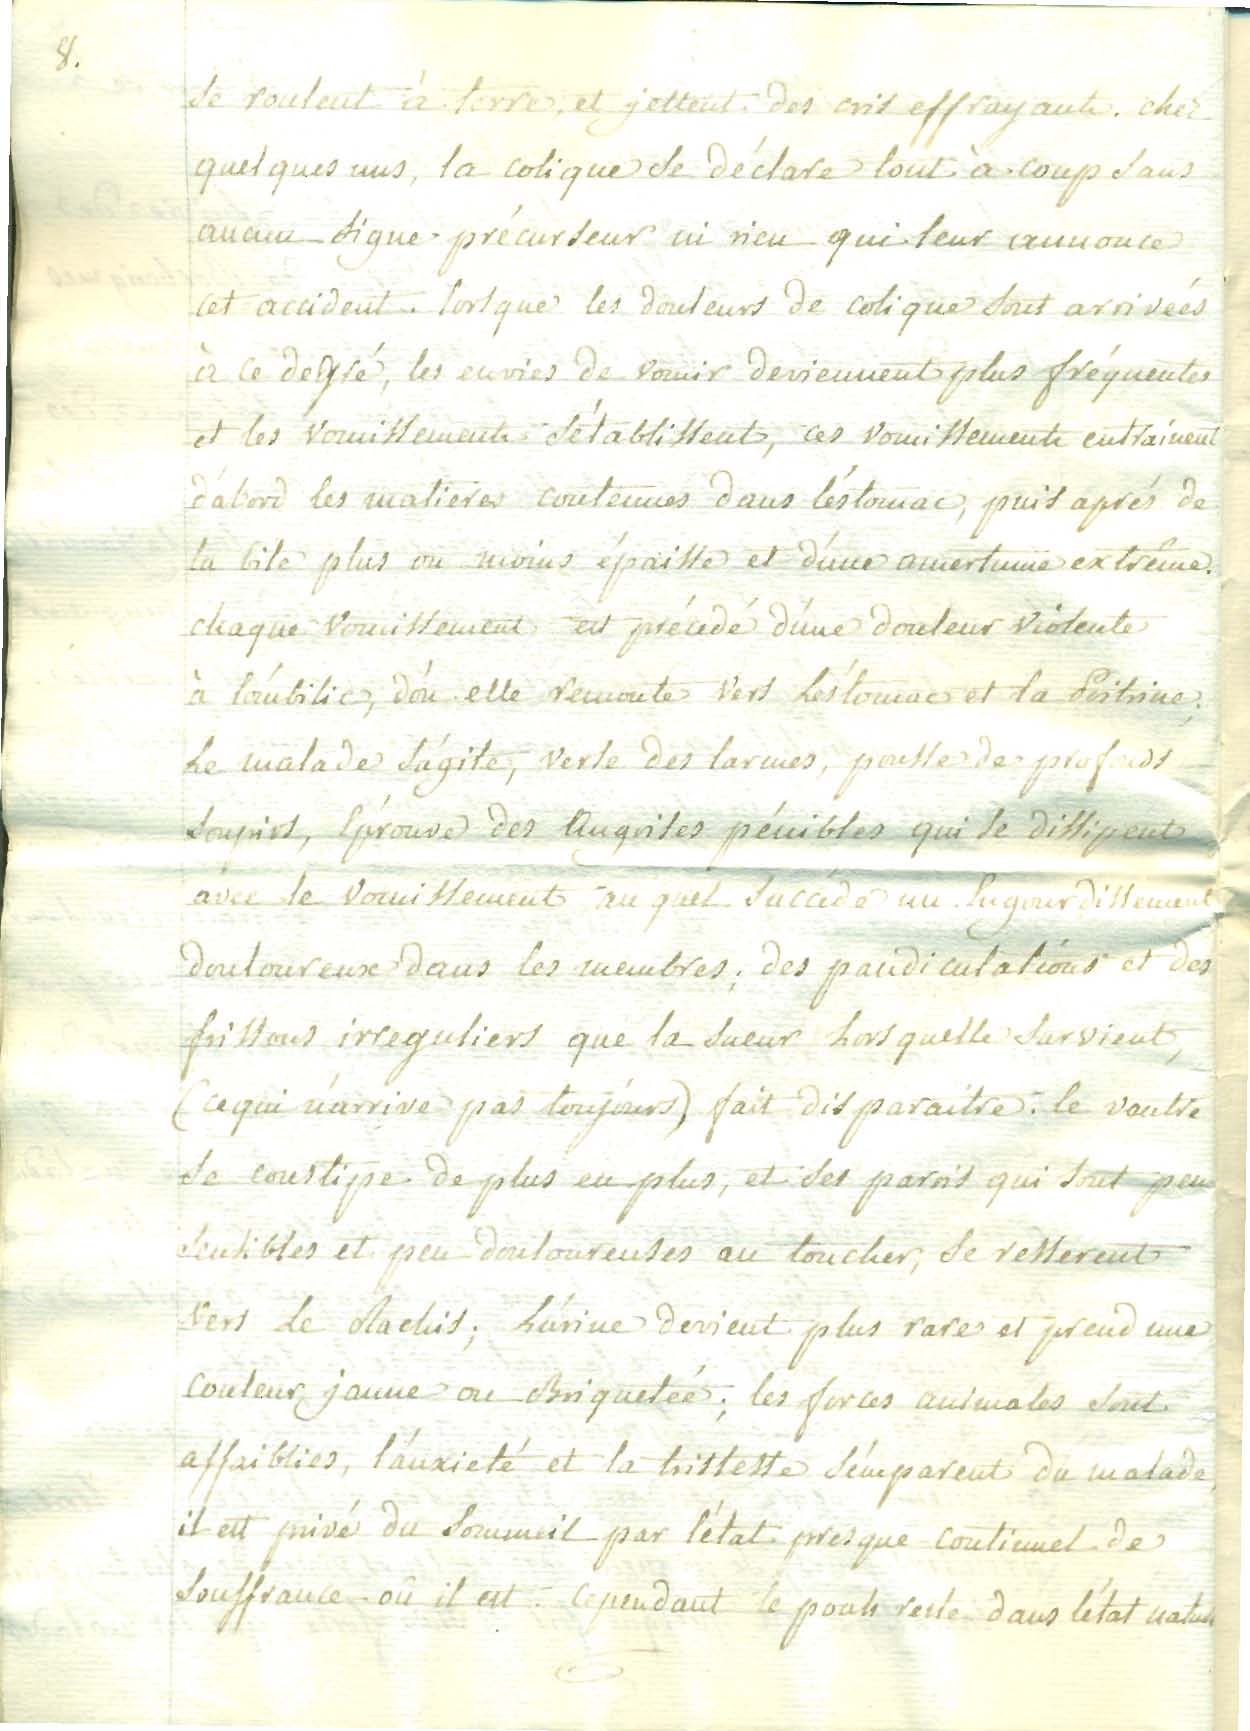 8.
se roulent à terre, et jettent des cris effrayants. chez
quelques uns, la colique se déclare tout à coup sans
aucun signe précurseur ni rien qui leur annonce
cet accident. lorsque les douleurs de colique sont arriveés
à ce degré, les envies de vomir deviennent plus fréquentes
et les vomissements s'établissent, ces vomissements entrainent
d'abord les matieres contenues dans l'éstomac, puis aprés de
la bile plus ou moins épaisse et d'une amertume extrême.
chaque vomissement est précédé d'une douleur violente
à l'ombilic, d'ou elle remonte vers L'éstomac et la Poitrine.
Le malade s'agite, verse des larmes, pousse de profonds
soupirs, Éprouve des Angoises pénibles qui se dissipent
avec le vomissement au quel succéde un Engourdissement
douloureux dans les membres, des pandiculations et des
frissons irreguliers que la sueur Lors quelle survient,
(cequi n'arrive pas toujours) fait disparaitre. le ventre
se constipe de plus en plus, et ses parois qui sont peu
sensibles et peu douloureuses au toucher, se resserent
vers Le Rachis; L'urine devient plus rare et prend une
couleur jaune ou Briquetée; les forces animales sont
affaiblies, l'anxieté et la tristesse s'émparent du malade,
il est privé du sommeil par l'état presque continuel de
souffrance où il est. Cependant le pouls reste dans l'état natur